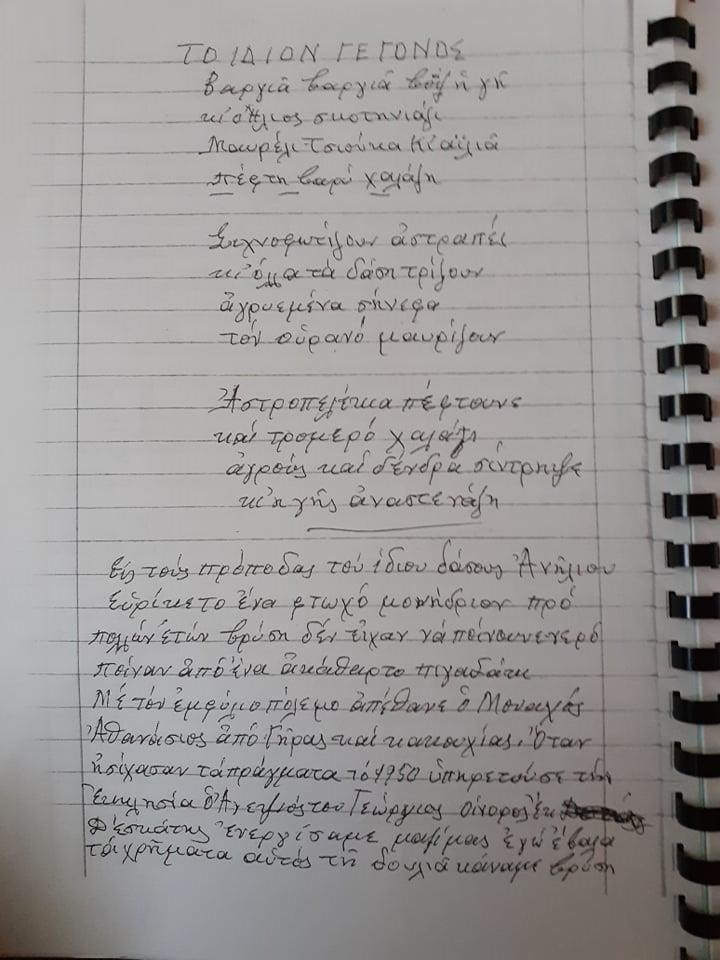 ΤΟ ΙΔΙΟΝ ΓΕΓΟΝΟΣ
Βαργιᾶ βαργιᾶ ἡ γῆ
κι' ὁ Ἥλιος σκοτηνιάζι
Μαυρέλι Τσιούκα Κιαϊλιᾶ
πέφτη βαρύ χαλάζη
Συχνοφωτίζουν ἀστραπές
κι' ὅλλα τά δάση τρίζουν
ἀγρυεμένα σήνεφα
τόν οὐρανό μαυρίζουν
Ἀστροπελέκια πέφτουνε
καί τρομερό χαλάζι
ἀγρούς καί δένδρα σίντρηψε
κι' η γῆς ἀναστενάζη
Εἰς τούς πρόποδας τοῦ ἰδίου δάσους Ἀνηλίου
Εὑρίκετο ἕνα φτωχό μονήδριον πρό
πολλῶν ἐτῶν βρύση δέν εἶχαν νά ποίνουνε νερό
ποίναν ἀπό ἕνα ἀκάθαρτο πιγαδάκι
Μέ τόν ἐμφύλιο πόλεμο ἀπέθανε ὁ Μοναχός
Ἀθανάσιος ἀπό Γῆρας καί κακουχίας. Ὅταν
ἡσίχασαν τά πράγματα τό 1950 ὑπηρετοῦσε τήν
Ἐκκλησία ὁ Ἀνεψιός του Γεώργιος ἐκ
Δεσκάτης ἐνεργίσαμε μαζί μας ἐγώ ἔβαλα
τά χρήματα αὐτός τῆ δουλιᾶ κάναμε βρύση